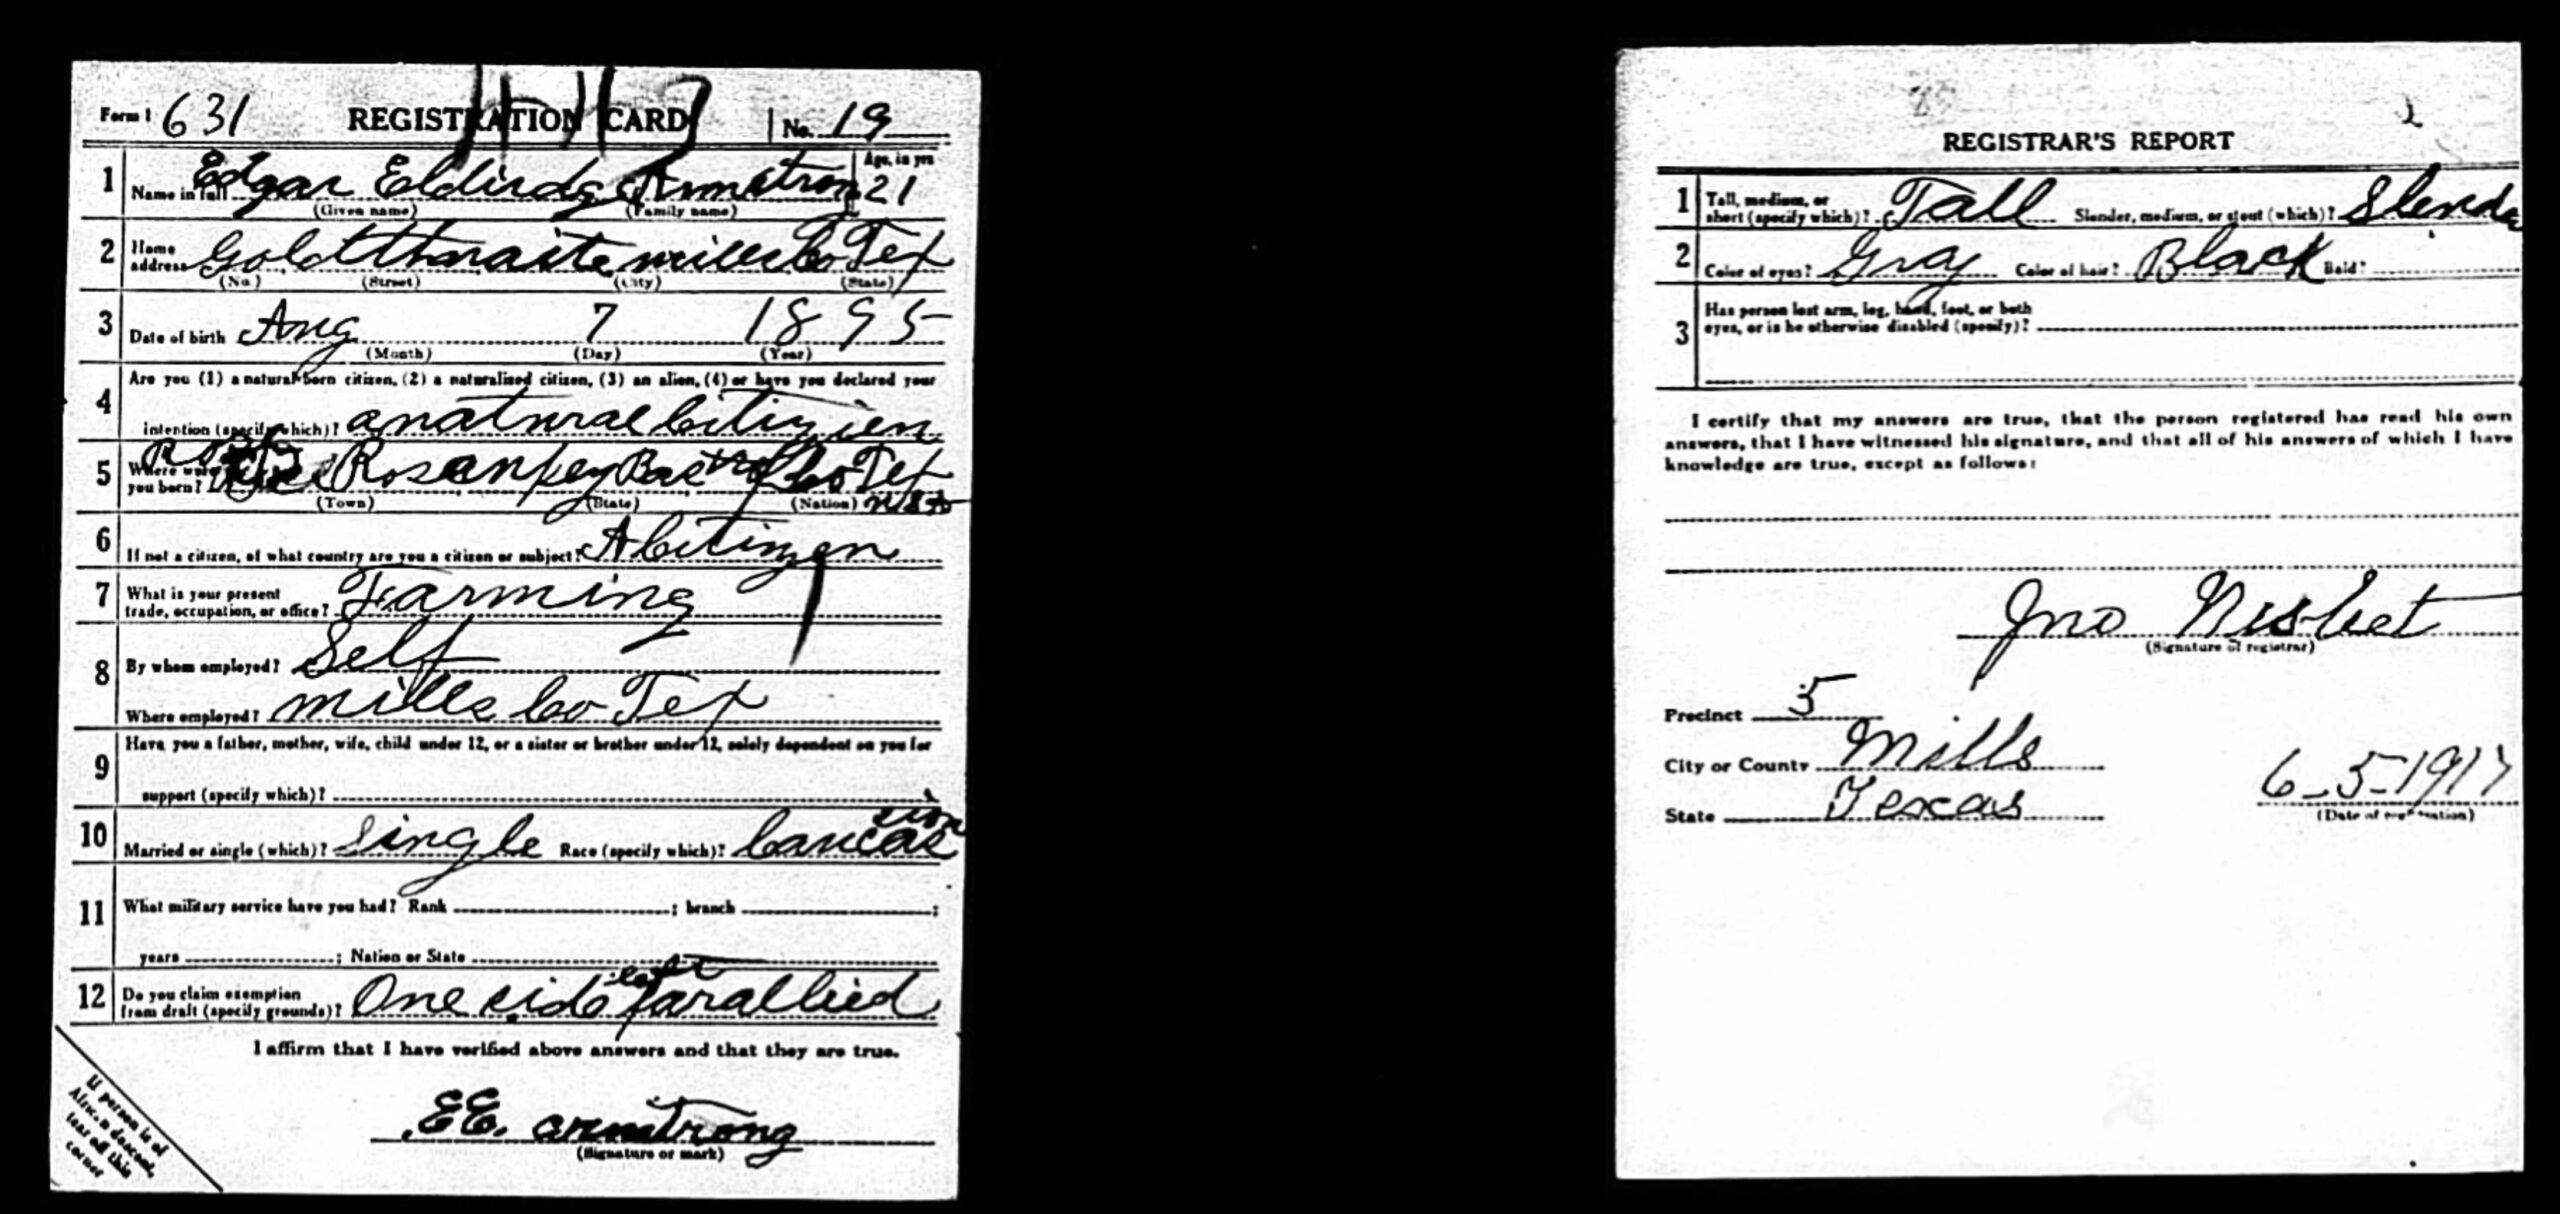 Form 1 631 REGISTRATION CARD No. 19
1 Name in full Edgar Eldirdge Armstrong Age, in yrs 21
(Given name) (Family name)
2 Home address Goldthwaite Mills Co Tex
(No.) (Street) (City) (State)
3 Date of birth Aug 7 1895
(Month) (Day) (Year)
4 Are you (1) a natural-born citizen, (2) a naturalized citizen, (3) an alien, (4) or have you declared your
intention (specify which)? a natural Citizien
5 Where were you born? Rosanky Bastrop Co Tex
(Town) (State) (Nation)
6 If not a citizen, of what country are you a citizen or subject? A Citizen
7 What is your present
trade, occupation, or office? Farming
8 By whom employed? Self
Where employed? Mills Co Tex
9 Have you a father, mother, wife, child under 12, or a sister or brother under 12, solely dependent on you for
support (specify which)?
10 Married or single (which)? Single Race (specify which)? Caucasion
11 What military service have you had? Rank ; branch ;
years ; Nation or State
12 Do you claim exemption
from draft (specify grounds)? One side left Parallied
I affirm that I have verified above answers and that they are true.
E E. Armstrong
(Signature or mark)
If person is of
African descent,
tear off this
corner
REGISTRAR'S REPORT
1 Tall, medium, or
short (specify which)? Tall Slender, medium, or stout (which)? Slender
2 Color of eyes? Gray Color of hair? Black Bald?
3 Has person lost arm, leg, hand, foot, or both
eyes, or is he otherwise disabled (specify)?
I certify that my answers are true, that the person registered has read his own
answers, that I have witnessed his signature, and that all of his answers of which I have
knowledge are true, except as follows:
Jno Nisbet
(Signature of registrar)
Precinct 5
City or County Mills
State Texas
6-5-1917
(Date of registration)